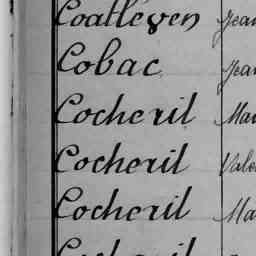 Coatléven Jean
Cobac Jean
Cocheril Ma
Cocheril Vale
Cocheril Ma
Cocheril